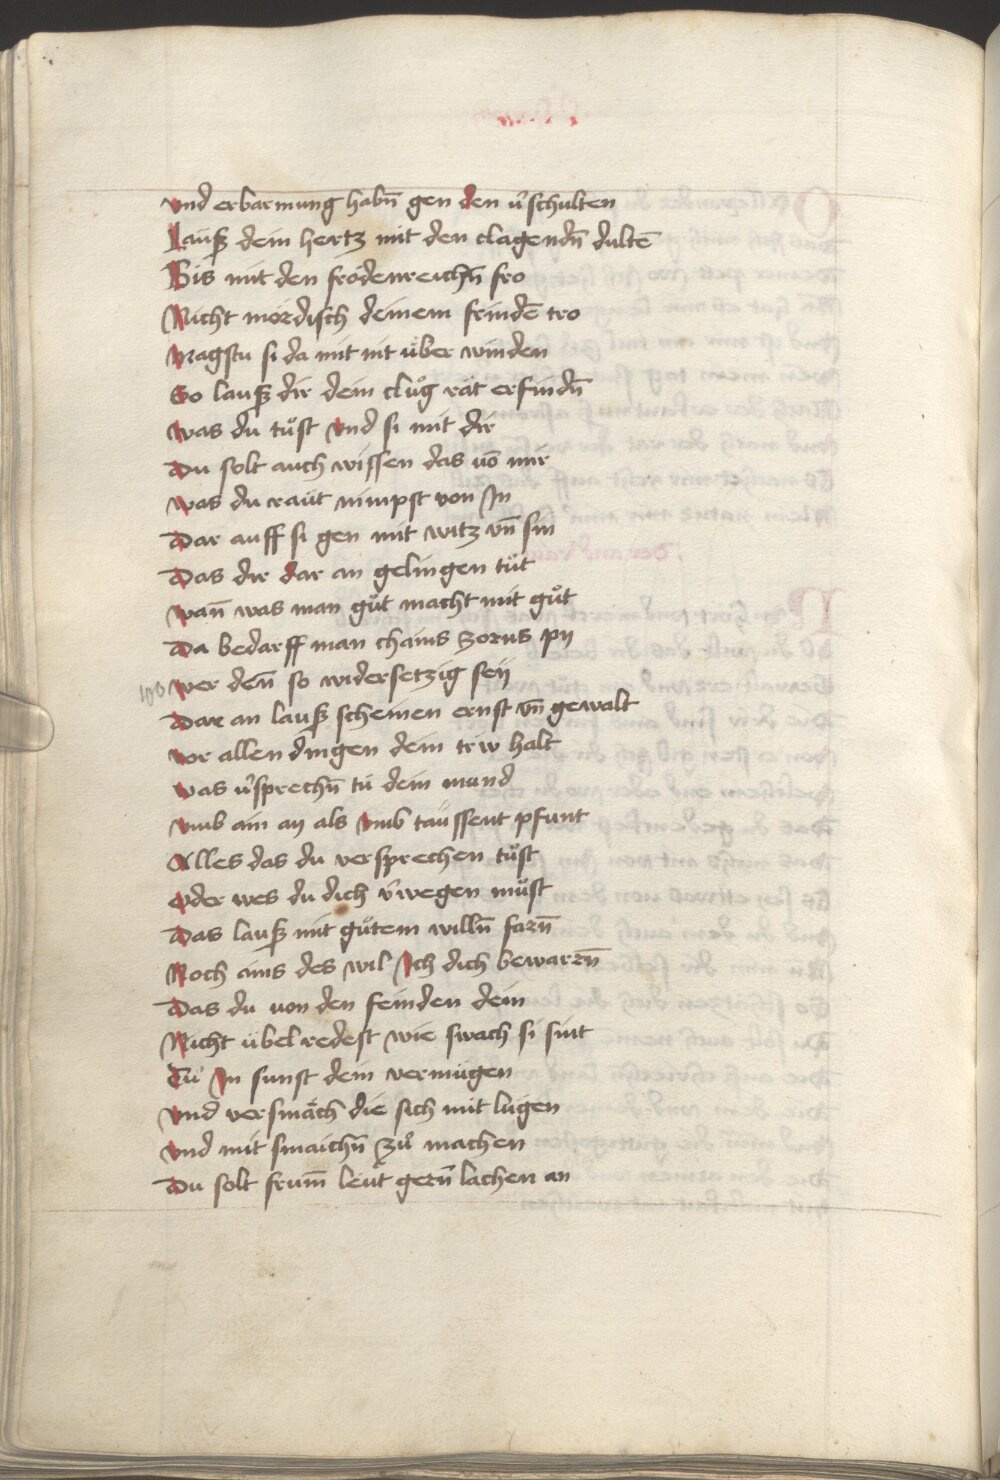 vnd erbarmung habn̄ gen den v̾schulten
Lauß dein hertz mit den clagendn̄ dultē
Bis mit den frödenreichn̄ fro
Nicht mördisch deinem feindē tro
Magstu si da mit nit über winden
So lauß dir dein clůg rät erfindn̄
Was du tůst vnd si mit dir
Du solt auch wissen das vō mir
Was du raüt nimpst von In
Dar auff si gen mit witz vn̄ sin
Das dir dar an gelingen tůt
Wan̄ was man gůt macht mit gůt
Da bedarff man chains zorns py
Wer den̄ so widersetzig seÿ
Dar an lauß scheinen ernst vn̄ gewalt
Vor allen dingen dein triw halt
Was v̾sprechn̄ tü dein mund
Vmb ain aÿ als vmb taussent pfunt
Alles das du versprechen tůst
Oder wes du dich v̾wegen můst
Das lauß mit gůtem willn̄ farn̄
Noch ains des wil Ich dich bewarn̄
Das du von den feinden dein
Nicht übel redest wie swach si sint
Tü In sunst dein vermügen
Vnd versmäch die sich mit lugen
Vnd mit smaichn̄ zů machen
Du solt frum̄ leüt gern̄ lachen an